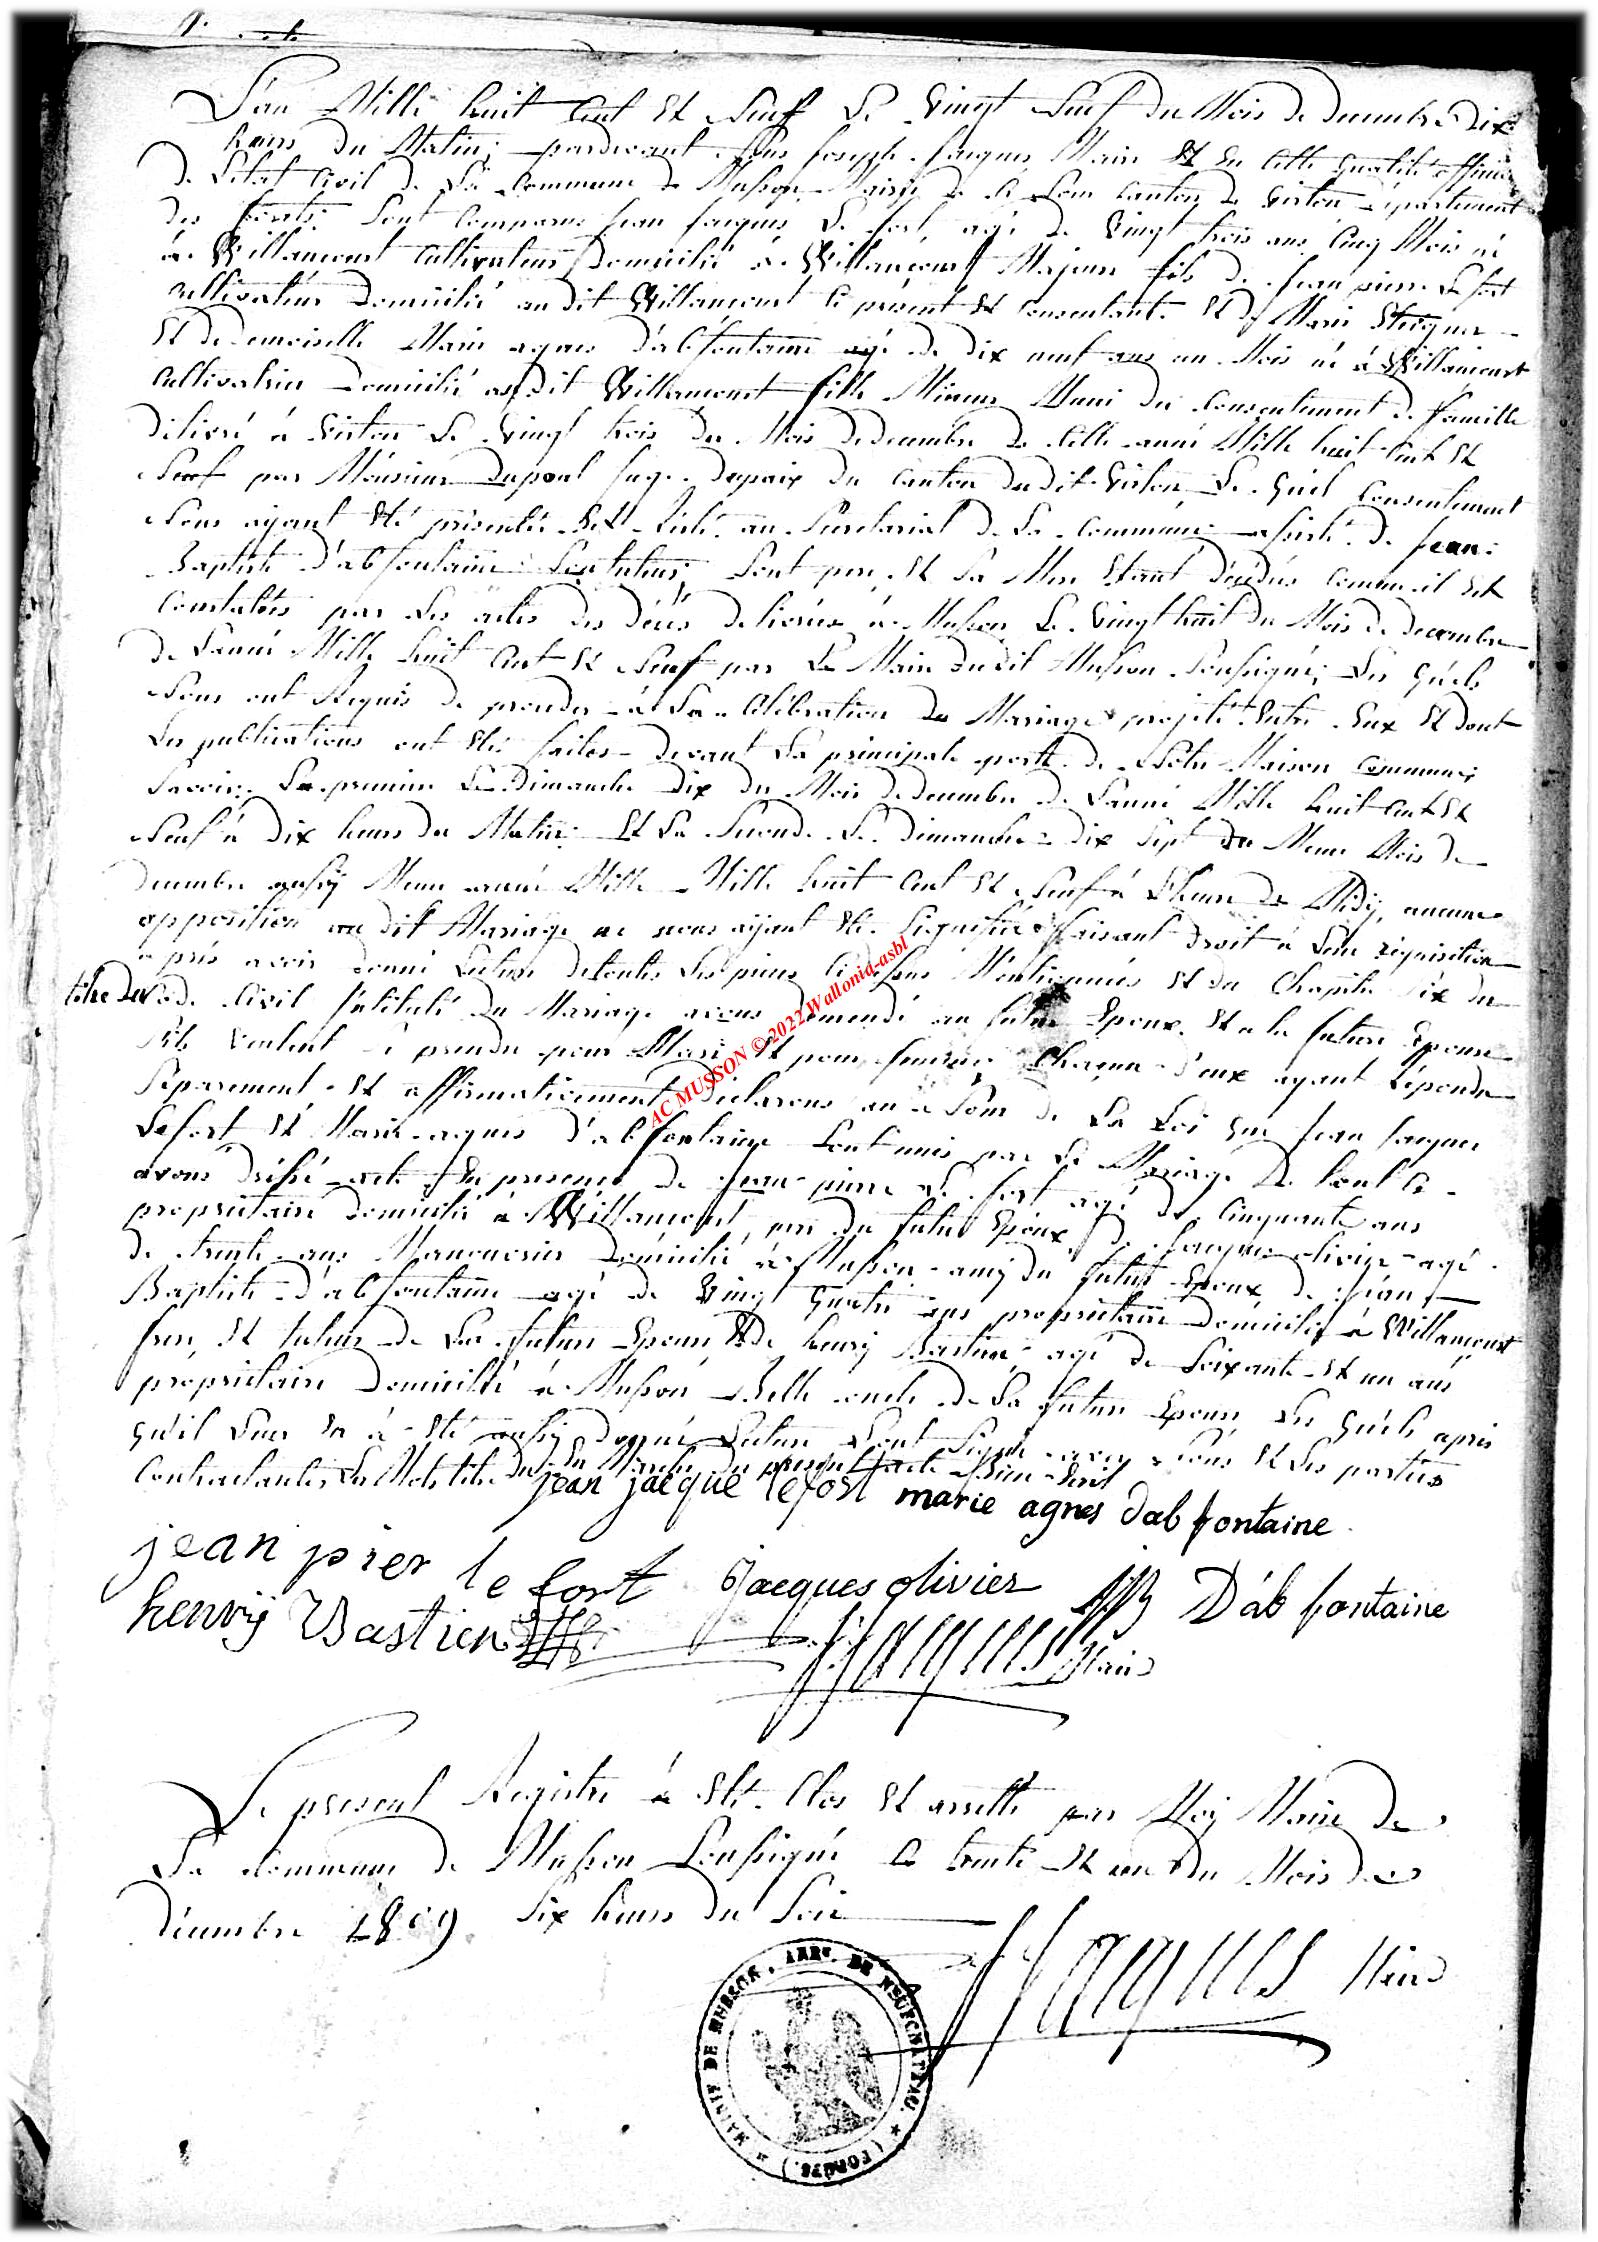 L'an Mille huit Cent Et Neuf Le Vingt Neuf du Mois de decembre Dix
heures du Matin; pardevant Nous Joseph Jacques Maire Et En Cette qualité officier
de L'Etat Civil de La Commune de Musson Mairie de Ce Nom Canton de Virton Département
des forêts: Sont Comparus Jean Jacques Le fort agé de Vingt trois ans Cinq Mois né
à Willancourt Cultivateur Domicilié à Willancourt Majeur fils de Jean pierre Le fort
Cultivateur Domicilié audit Willancourt Ci présent Et Consentant Et de Marie
Et de Demoiselle Marie agnes D'abfontaine agé de dix neuf ans un Mois né à Willancourt
Cultivatrice Domicilié audit Willancourt fille Mineure Muni du Consentement de famille
délivré à Virton Le Vingt trois du Mois de decembre de Cette année Mille huit Cent Et
Neuf par Monsieur Dupont Juge depaix du Canton dudit Virton Le quel Consentement
Nous ayant Eté présenté Est Resté au Secretariat de La Commune assisté de Jean
Baptiste D'abfontaine Son tuteur; Sont pere Et Sa Mere Etant décédés Comme il Est
Constatés par Les actes des décés delivrés à Musson Le Vingt huit du Mois de decembre
de L'année Mille huit Cent Et Neuf par Le Maire dudit Musson Soussigné; Les quels
Nous ont Requis de proceder à La Célébration du Mariage projeté Entre Eux Et dont
Les publications ont Eté faites devant La principale porte de Notre Maison Commune
Savoir: La premiere Le Dimanche Dix du Mois de decembre de L'année Mille huit Cent Et
Neuf à Dix heures du Matin: Et La Seconde Le dimanche dix Sept du Meme Mois de
decembre aussy Meme année Mille Mille huit Cent Et Neuf à L'heure de Midy, aucune
opposition au dit Mariage ne nous ayant Eté Signifiée faisant droit à Leur réquisition
après avoir donné Lecture detoutes Les pieces Ci dessus Mentionnées Et du Chapitre Six du
titre du Code Civil Intitulé du Mariage avons demendé au futur Epoux Et a la future Epouse
S'ils Veulent Se prendre pour Mari Et pour femme Chacun d'eux ayant répondu
Séparement Et affirmativement Declarons au Nom de La Loi que Jean Jacques
Lefort Et Marie agnes D'abfontaine Sont unis par Le Mariage De tout Ce
avons dréssé acte En presence de Jean pierre Le fort agé de Cinquante ans
propriétaire Domicilié à Willancourt pere du futur Epoux De Jacques olivier agé
de trente ans Manouvrier Domicilié à Musson amy du futur Epoux de Jean
Baptiste D'abfontaine agé de Vingt quatre ans propriétaire Domicilié à Willancourt
frere Et tuteur de La future Epouse Et de henry Bastien agé de Soixante Et un ans
propriétaire Domicillié à Musson Belle oncle de La future Epouse Les quels apres
qu'il Leur En à Eté aussy Donné Lecture Sont Signé avec Nous Et Les parties
Contractantes Les Mots titre du En Marche du present acte Bien Ecrit
jean jacque lefort marie agnes dab fontaine
jean pier le fort jacques olivier JB D'ab fontaine
henrÿ Bastien JJacques Maire
Le present Registre à Eté Clos Et arretté par Moy Maire de
La Commune de Musson Soussigné Ce trente Et un du Mois de
décembre 1809 Six heures du Soir
JJacques Maire
MAIRIE DE MUSSON, ARR. DE NEUFCHATEAU. (FORÊTS.)
AC MUSSON © 2022 Wallonia-asbl